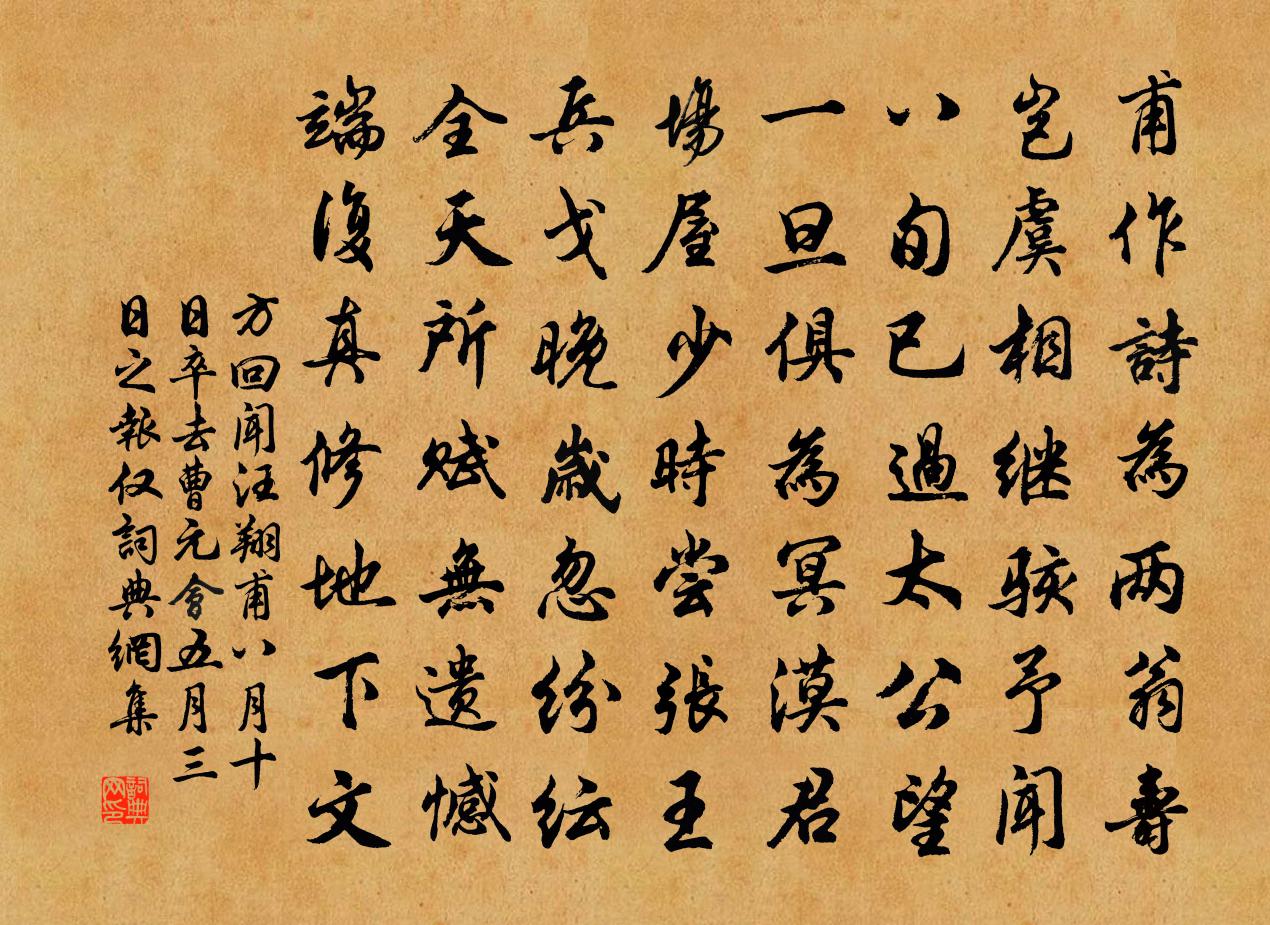 甫作詩為两翁壽
岂虞相继骇予闻
八旬已過太公望
一旦俱為冥漠君
場屋少時尝張王
兵戈晚歲忽纷纭
全天所赋無遗憾
端復真修地下文
方回闻汪翔甫八月十
日卒去曹元會五月三
日之報仅詞典網集
詞典
网印